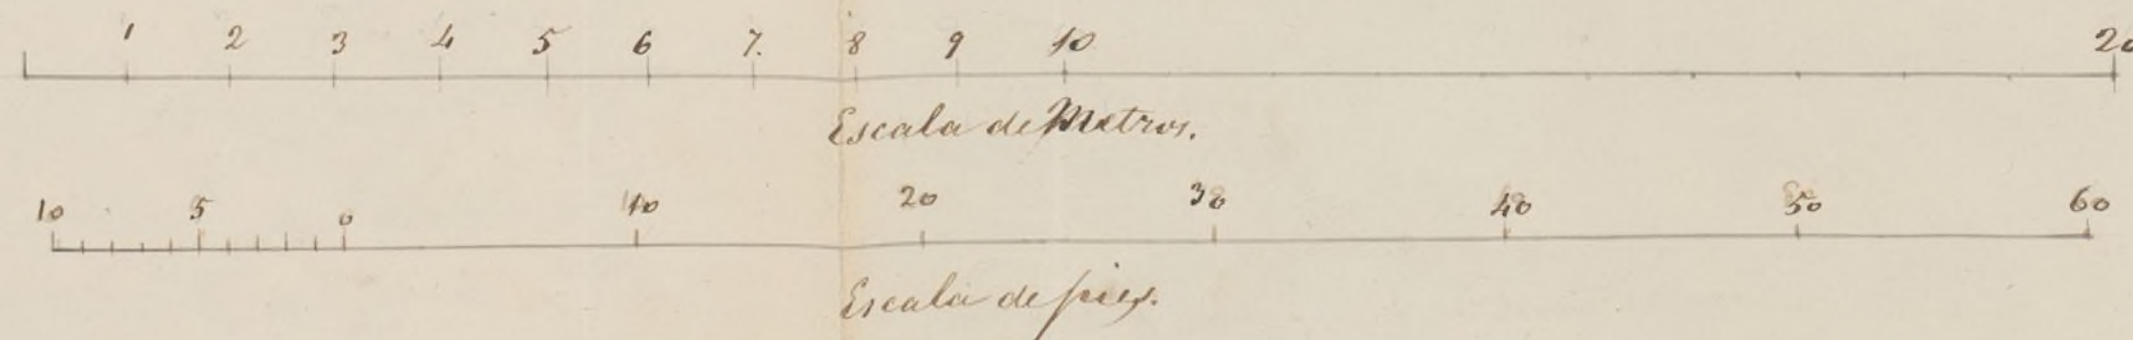 1 2 3 4 5 6 7. 8 9 10 20
Escala de Metros.
10 5 0 10 20 30 40 50 60
Escala de pies.